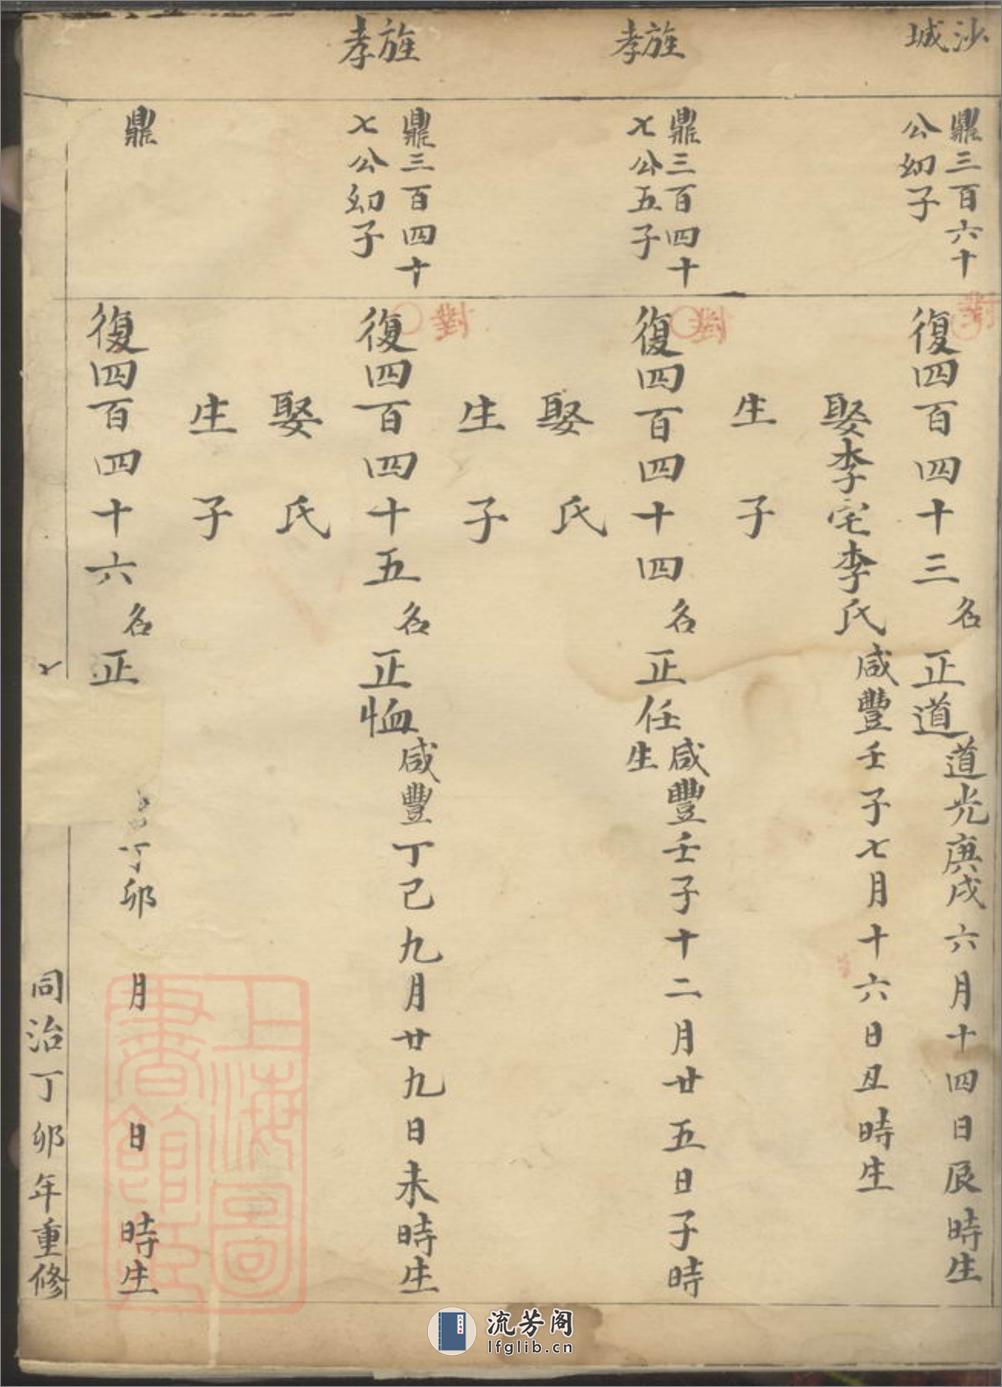 沙城
鼎三百六十
公幼子
對
復四百四十三名正道道光庚戌六月十四日辰時生
娶李宅李氏咸豐壬子七月十六日丑時生
生 子
旌孝
鼎三百四十
七公五子
對
復四百四十四名正任咸豐壬子十二月廿五日子時
生
娶 氏
生 子
旌孝
鼎三百四十
七公幼子
對
復四百四十五名正恤咸豐丁巳九月廿九日未時生
娶 氏
生 子
鼎
復四百四十六名正
丁卯 月 日 時生
同治丁卯年重修
上海圖書館藏
流芳阁
lfglib.cn